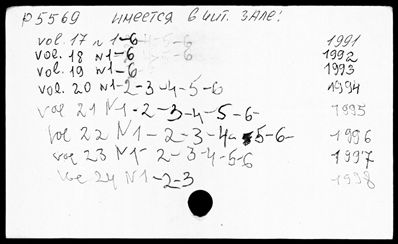 P5569 имеется в чит. зале:
vol. 17 n 1-6 1991
vol. 18 N1-6 1992
vol. 19 N1-6 1993
vol. 20 N1-2-3-4-5-6 1994
vol 21 N1-2-3-4-5-6- 1995
vol 22 N1-2-3-4-5-6- 1996
vol 23 N1-2-3-4-5-6 1997
vol 24 N1-2-3 1998